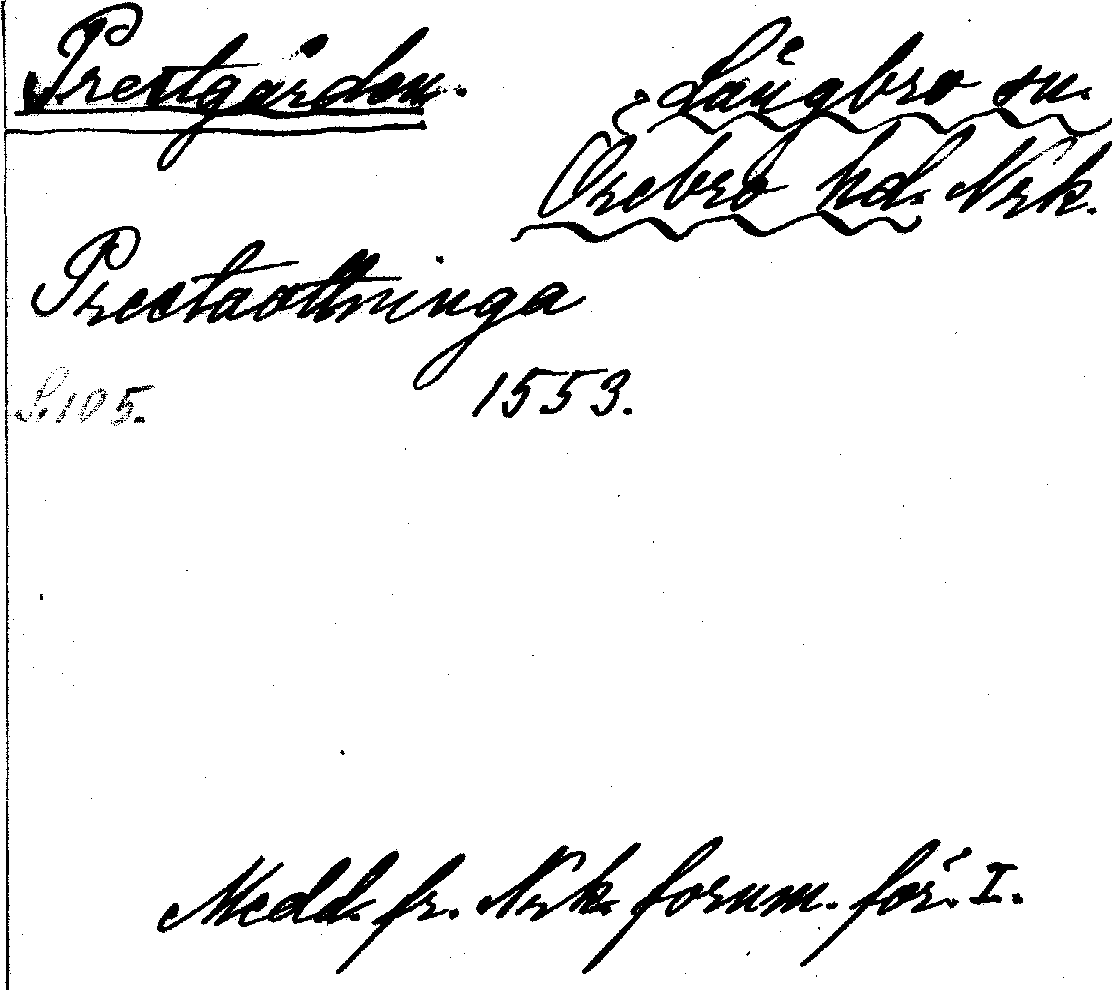 Prestgården.
Långbro sn.
Örebro hd. Nrk.
Prestaottninga
S. 105.
1553.
Medd. fr. Nrk. fornm. för. I.